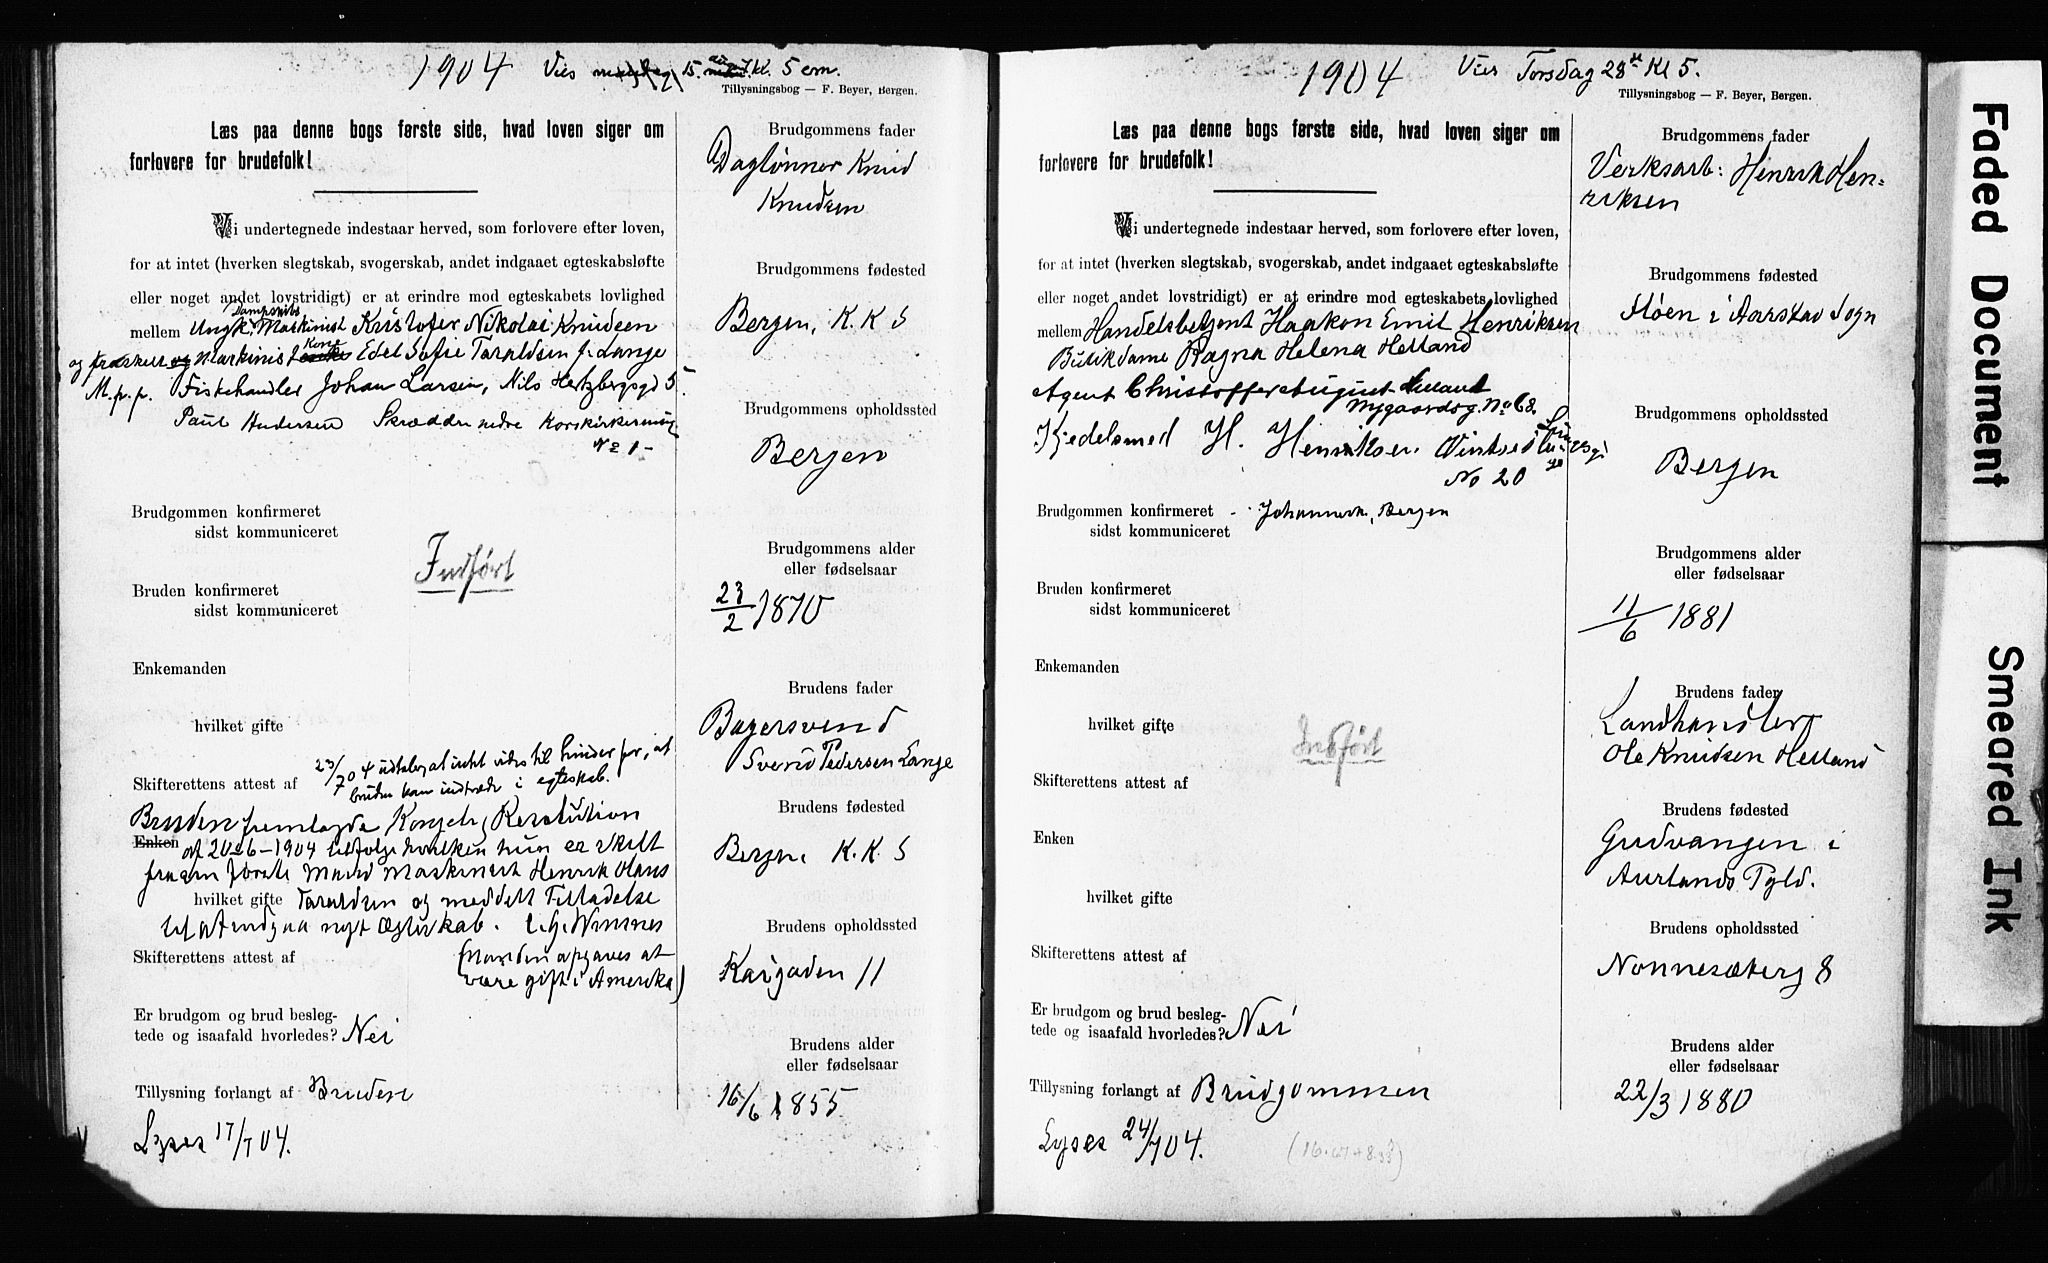 1904 Vies 15. kl. 5 em.
Tillysningsbog — F. Beyer, Bergen.
Læs paa denne bogs første side, hvad loven siger om
forlovere for brudefolk!
Vi undertegnede indestaar herved, som forlovere efter loven,
for at intet (hverken slegtskab, svogerskab, andet indgaaet egteskabsløfte
eller noget andet lovstridigt) er at erindre mod egteskabets lovlighed
Dampskibs
mellem Ungk. Maskinist Kristofer Nikolai Knudsen
og fraskilt Maskinist Kone Edel Sofie Taraldsen f. Lange
M.p.p. Fiskehandler Johan Larsen, Nils Hertzbergsgd 5
Paul Andersen Skrædder nedre Korskirkesmug
No 1 -
Brudgommen konfirmeret
sidst kommuniceret
Indført
Bruden konfirmeret
sidst kommuniceret
Enkemanden
hvilket gifte
Skifterettens attest af 23/7 04 udtaler, at intet vides til hinder for, at
bruden kan indtræde i egteskab.
Bruden fremlagde Kongelig Resolution
Enken af 20-6-1904 ifølge hvilken hun er skilt
fra sin første Mand Maskinist Henrik Hans
hvilket gifte Taraldsen og meddelt Tilladelse
til at indgaa nyt Ægteskab.
Skifterettens attest af (Manden opgaves at
være gift i Amerika)
Er brudgom og brud besleg-
tede og isaafald hvorledes? Nei
Tillysning forlangt af Bruden
Lyses 17/7 04.
Brudgommens fader
Daglønner Knud
Knudsen
Brudgommens fødested
Bergen, K. K S
Brudgommens opholdssted
Bergen
Brudgommens alder
eller fødselsaar
23/2 1870
Brudens fader
Bagersvend
Svend Pedersen Lange
Brudens fødested
Bergen K. K S
Brudens opholdssted
Kaigaden 11
Brudens alder
eller fødselsaar
16/6 1855
1904 Vies Torsdag 28de Kl 5.
Tillysningsbog — F. Beyer, Bergen.
Læs paa denne bogs første side, hvad loven siger om
forlovere for brudefolk!
Vi undertegnede indestaar herved, som forlovere efter loven,
for at intet (hverken slegtskab, svogerskab, andet indgaaet egteskabsløfte
eller noget andet lovstridigt) er at erindre mod egteskabets lovlighed
mellem Handelsbetjent Haakon Emil Henriksen
Butikdame Ragna Helena Helland
Agent Christoffer August Helland
Nygaardsg. No 68.
Kjedelsmed H. Henriksen
No 20
Brudgommen konfirmeret - Johannesk., Bergen
sidst kommuniceret
Bruden konfirmeret
sidst kommuniceret
Enkemanden
hvilket gifte
Indført
Skifterettens attest af
Enken
hvilket gifte
Skifterettens attest af
Er brudgom og brud besleg-
tede og isaafald hvorledes? Nei
Tillysning forlangt af Brudgommen
Lyses 24/7 04.
Brudgommens fader
Verksarb: Henrik Hen=
riksen
Brudgommens fødested
Moen i Aarstad Sogn
Brudgommens opholdssted
Bergen
Brudgommens alder
eller fødselsaar
11/6 1881
Brudens fader
Landhandler
Ole Knudsen Helland
Brudens fødested
Gudvangen i
Aurlands Pgld.
Brudens opholdssted
Nonnesæterg 8
Brudens alder
eller fødselsaar
22/3 1880
Faded Document
Smeared Ink